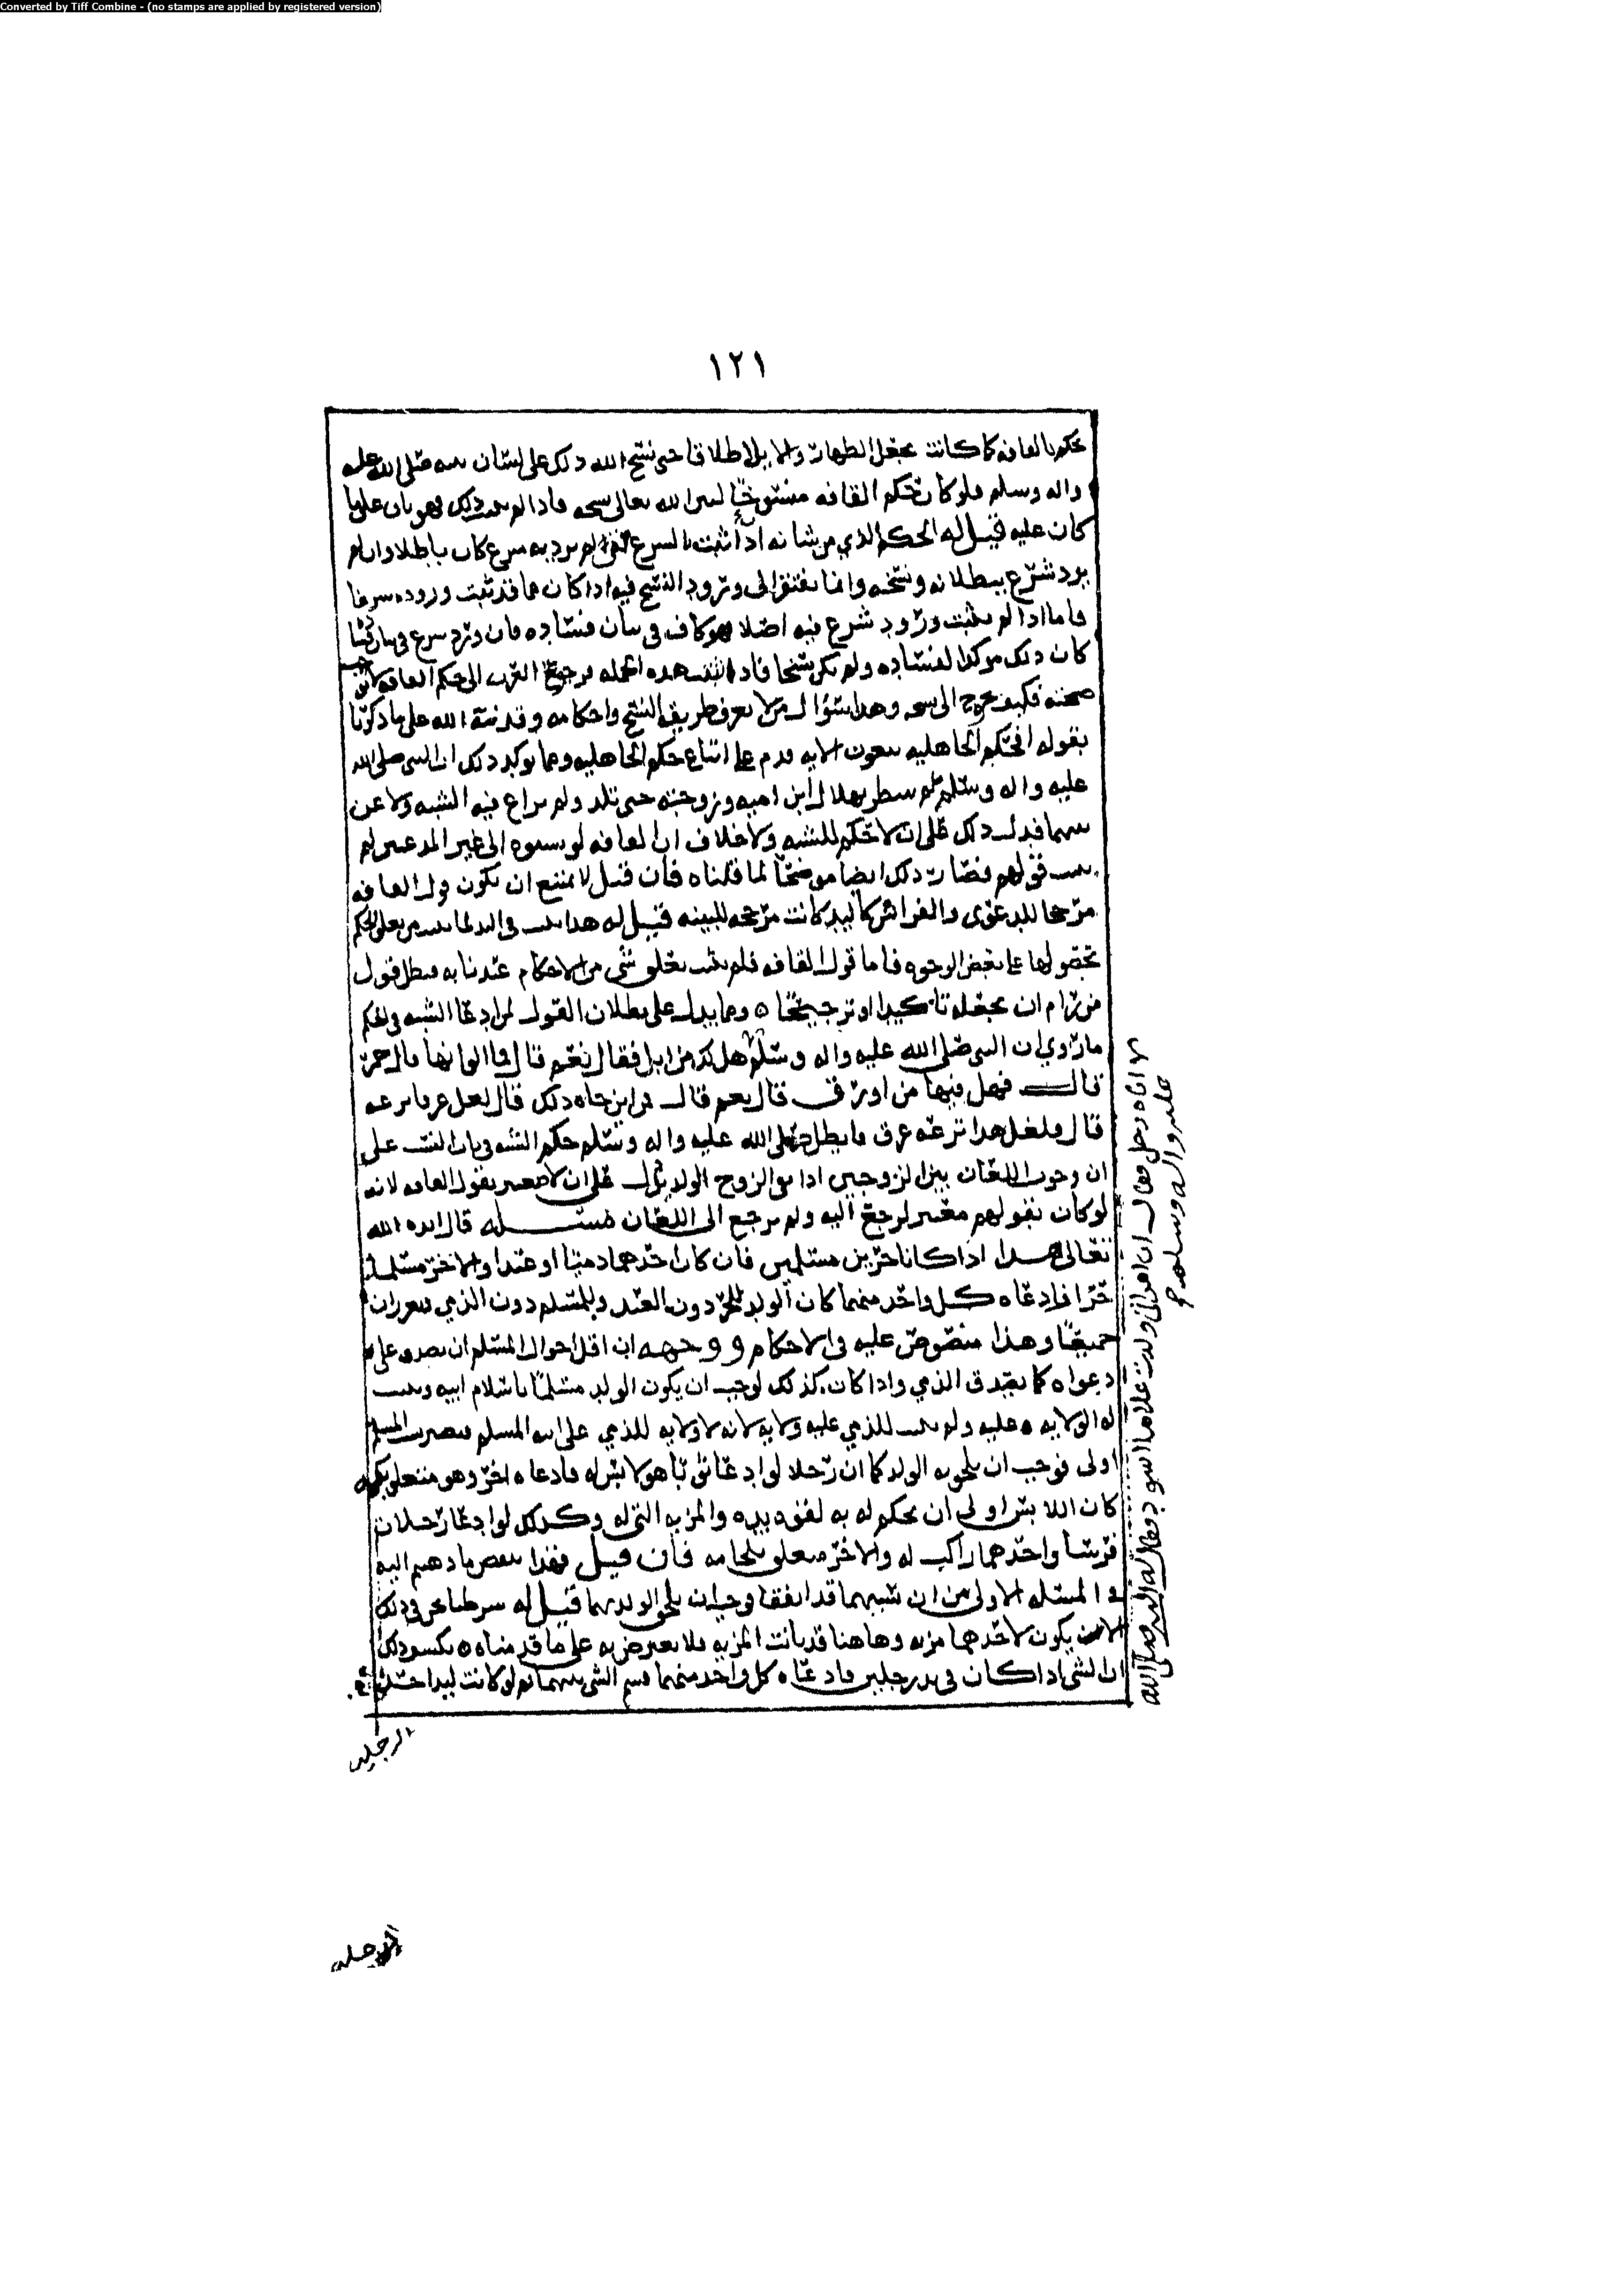 Converted by Tiff Combine - (no stamps are applied by registered version)
١٢١
تحكم بالقافه كما كانت تجعل الظهار والايلا طلاقا حتى نسخ الله ذلك على لسان نبيه صلى الله عليه
واله وسلم فلو كان تحكم القافه منسوخا لبين الله تعالى نسخه فاذا لم يثبت ذلك فهو باق على ما
كان عليه قيل له الحكم الذي من شانه اذا ثبت بالشرع متى لم يرد به شرع كان باطلا وان لم
يرد شرع ببطلانه ونسخه وانما يفتقر الى ورود النسخ فيه اذا كان مما قد ثبت وروده شرعا
فاما اذا لم يثبت ورود شرع فيه اصلا فهو كاف في بيان فساده فان ورد شرع في بيان
كان ذلك موكدا لفساده ولم يكن نسخا فاذا هذه الجمله فرجوع العرب الى حكم القافه
صحته فكيف يحوج الى نسخه وهذا سؤال من لا يعرف طريقه النسخ واحكامه وقد نبه الله على ما ذكرنا
بقوله افحكم الجاهليه يبغون الايه فذم على اتباع حكم الجاهليه ومما يوكد ذلك ان النبي صلى الله
عليه واله وسلم لم ينتظر بهلال ابن اميه وزوجته حتى تلد ولم يراع فيه الشبه ولاعن
بينهما فدل ذلك على ان لا حكم للشبه ولا خلاف ان القافه لو نسبوه الى غير المدعيين لم
يثبت قولهم فصار ذلك ايضا موضحا لما قلناه فان قيل لا يمتنع ان يكون قول القافه
مرجحا للدعوى والفراش كاليد كانت مرجحه للبينه قيل له هذا يثبت في اليد لما ثبت من تعلق الحكم
بحصولها على بعض الوجوه فاما قول القافه فلم يثبت تعلق شي من الاحكام عندنا به فبطل قول
من رام ان يجعله تاكيدا او ترجيحا ٥ ومما يدل على بطلان القول لمن ادعا الشبه في الحكم
ما روي ان النبي صلى الله عليه واله وسلم هل لك من ابل فقال نعم قال فما الوانها قال حمر
قال فهل فيها من اورق قال نعم قال فمن اين جاه ذلك قال لعل عرقا نزعه
قال فلعل هذا نزعه عرق فابطل صلى الله عليه واله وسلم حكم الشبه في باب النسب على
ان وجوب اللعان بين الزوجين اذا نفى الزوج الولد يدل على ان لا معتبر بقول القافه لانه
لو كان بقولهم معتبر لرجع اليه ولم يرجع الى اللعان مسئله قال ايده الله
تعالى هذا اذا كانا حرين مسلمين فان كان احدهما ذميا او عبدا والاخر مسلما
حرا فادعاه كل واحد منهما كان الولد للحر دون العبد وللمسلم دون الذمي
جميعا وهذا منصوص عليه في الاحكام ووجهه ان اقل احوال المسلم ان يصدق على
دعواه كما يصدق الذمي واذا كان كذلك لوجب ان يكون الولد مسلما باسلام ابيه ويثبت
له الولايه عليه ولم يثبت للذمي عليه ولايه لانه لا ولايه للذمي على ابنه المسلم فيصير المسلم
اولى فوجب ان يلحق به الولد كما ان رجلا لو ادعا ثوبا هو لابس له فادعاه اخر وهو متعلق بكمه
كان اللابس اولى ان يحكم له به لقوه يده والمزيه التي له وكذلك لو ادعا رجلان
فرسا واحدهما راكب له والاخر متعلق بلجامه فان قيل فهذا ينقض ما ذهبتم اليه
في المسئله الاولى من ان شبههما قد اتفقا وجب ان يلحق الولد بهما قيل له شرطنا نحن في ذلك
الا يكون لاحدهما مزيه وهاهنا قد بانت المزيه فلا يعترض به على ما قدمناه ٥ يكشف ذلك
ان الشي اذا كان في يد رجلين فادعاه كل واحد منهما قسم الشي بينهما ثم لو كانت ليد احد
الرجلين
الرجلين
اتاه رجل فقال ان امراتي ولدت غلاما اسود فقال له النبي صلى الله
عليه واله وسلم